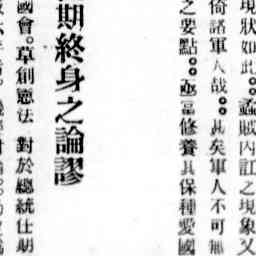 現狀如此。。蟊賊內訌之現象又
倚諸軍人哉。。甚矣軍人不可無
之要點。。亟修養其保種愛國
期終身之論謬
國會。草創憲法 對於總統任期